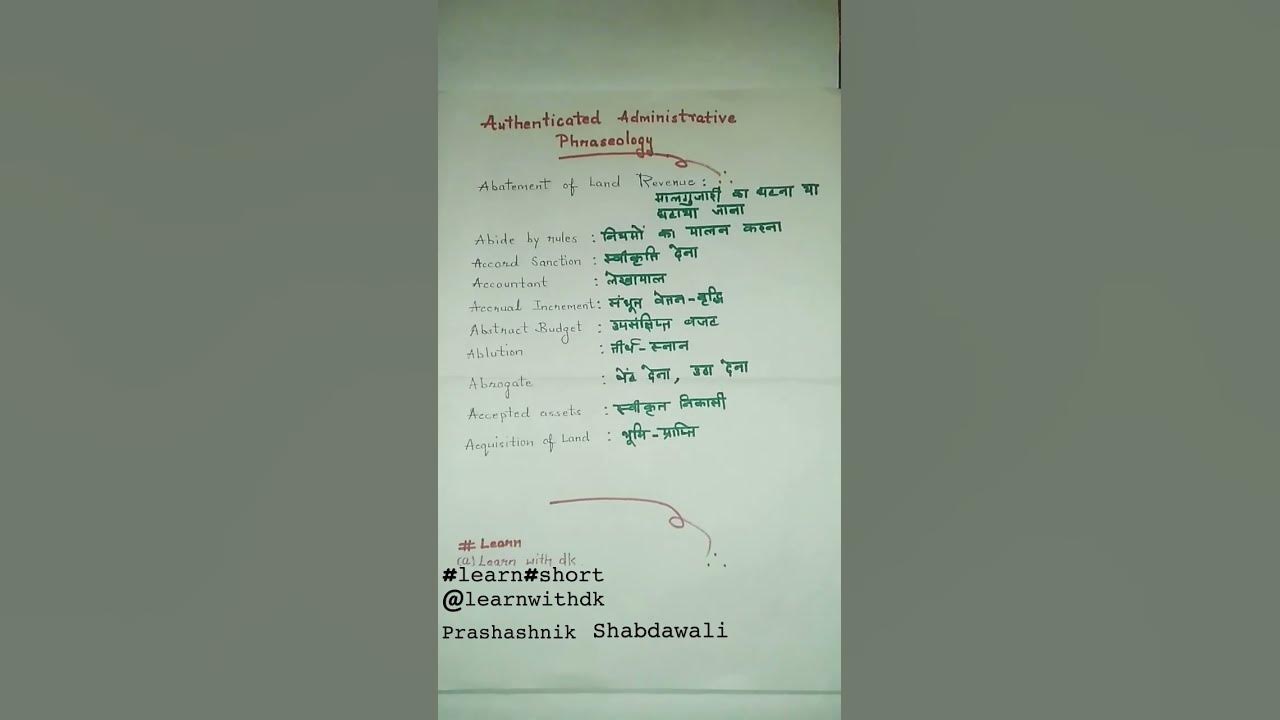 Authenticated Administrative
Phraseology
Abatement of Land Revenue :
मालगुजारी का घटना या
घटाया जाना
Abide by rules : नियमों का पालन करना
Accord Sanction : स्वीकृति देना
Accountant : लेखापाल
Accrual Increment : संभूत वेतन-वृद्धि
Abstract Budget : उपसंक्षिप्त बजट
Ablution : तीर्थ-स्नान
Abrogate : मेंट देना, उठा देना
Accepted assets : स्वीकृत निकासी
Acquisition of Land : भूमि-प्राप्ति
# Learn
(a) Learn with dk
#learn#short
@learnwithdk
Prashashnik Shabdawali